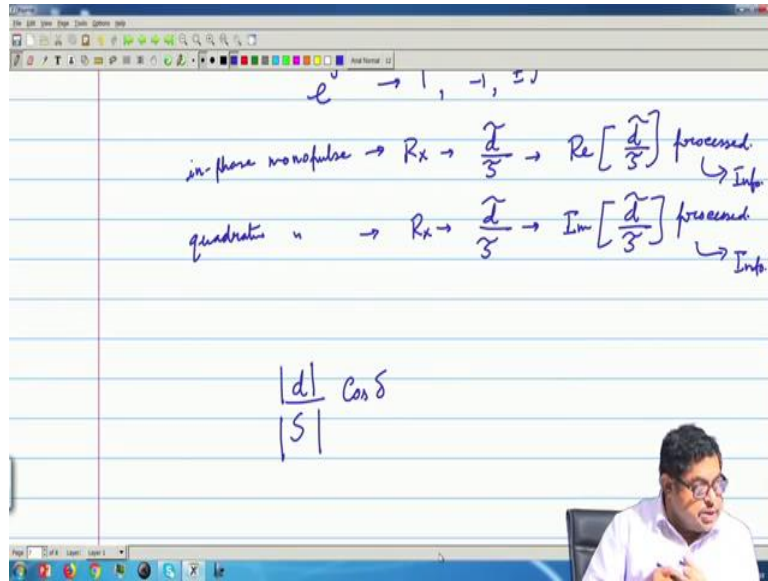 File Edit View Page Tools Options Help
Arial Normal 12
e^j → 1, -1, ±j
in-phase monopulse → Rx → d̃/s̃ → Re [d̃/s̃] processed.
↳ Info.
quadrature " → Rx → d̃/s̃ → Im [d̃/s̃] processed.
↳ Info.
|d|/|S| Cos δ
Page 7 of 8 Layer: Layer 1